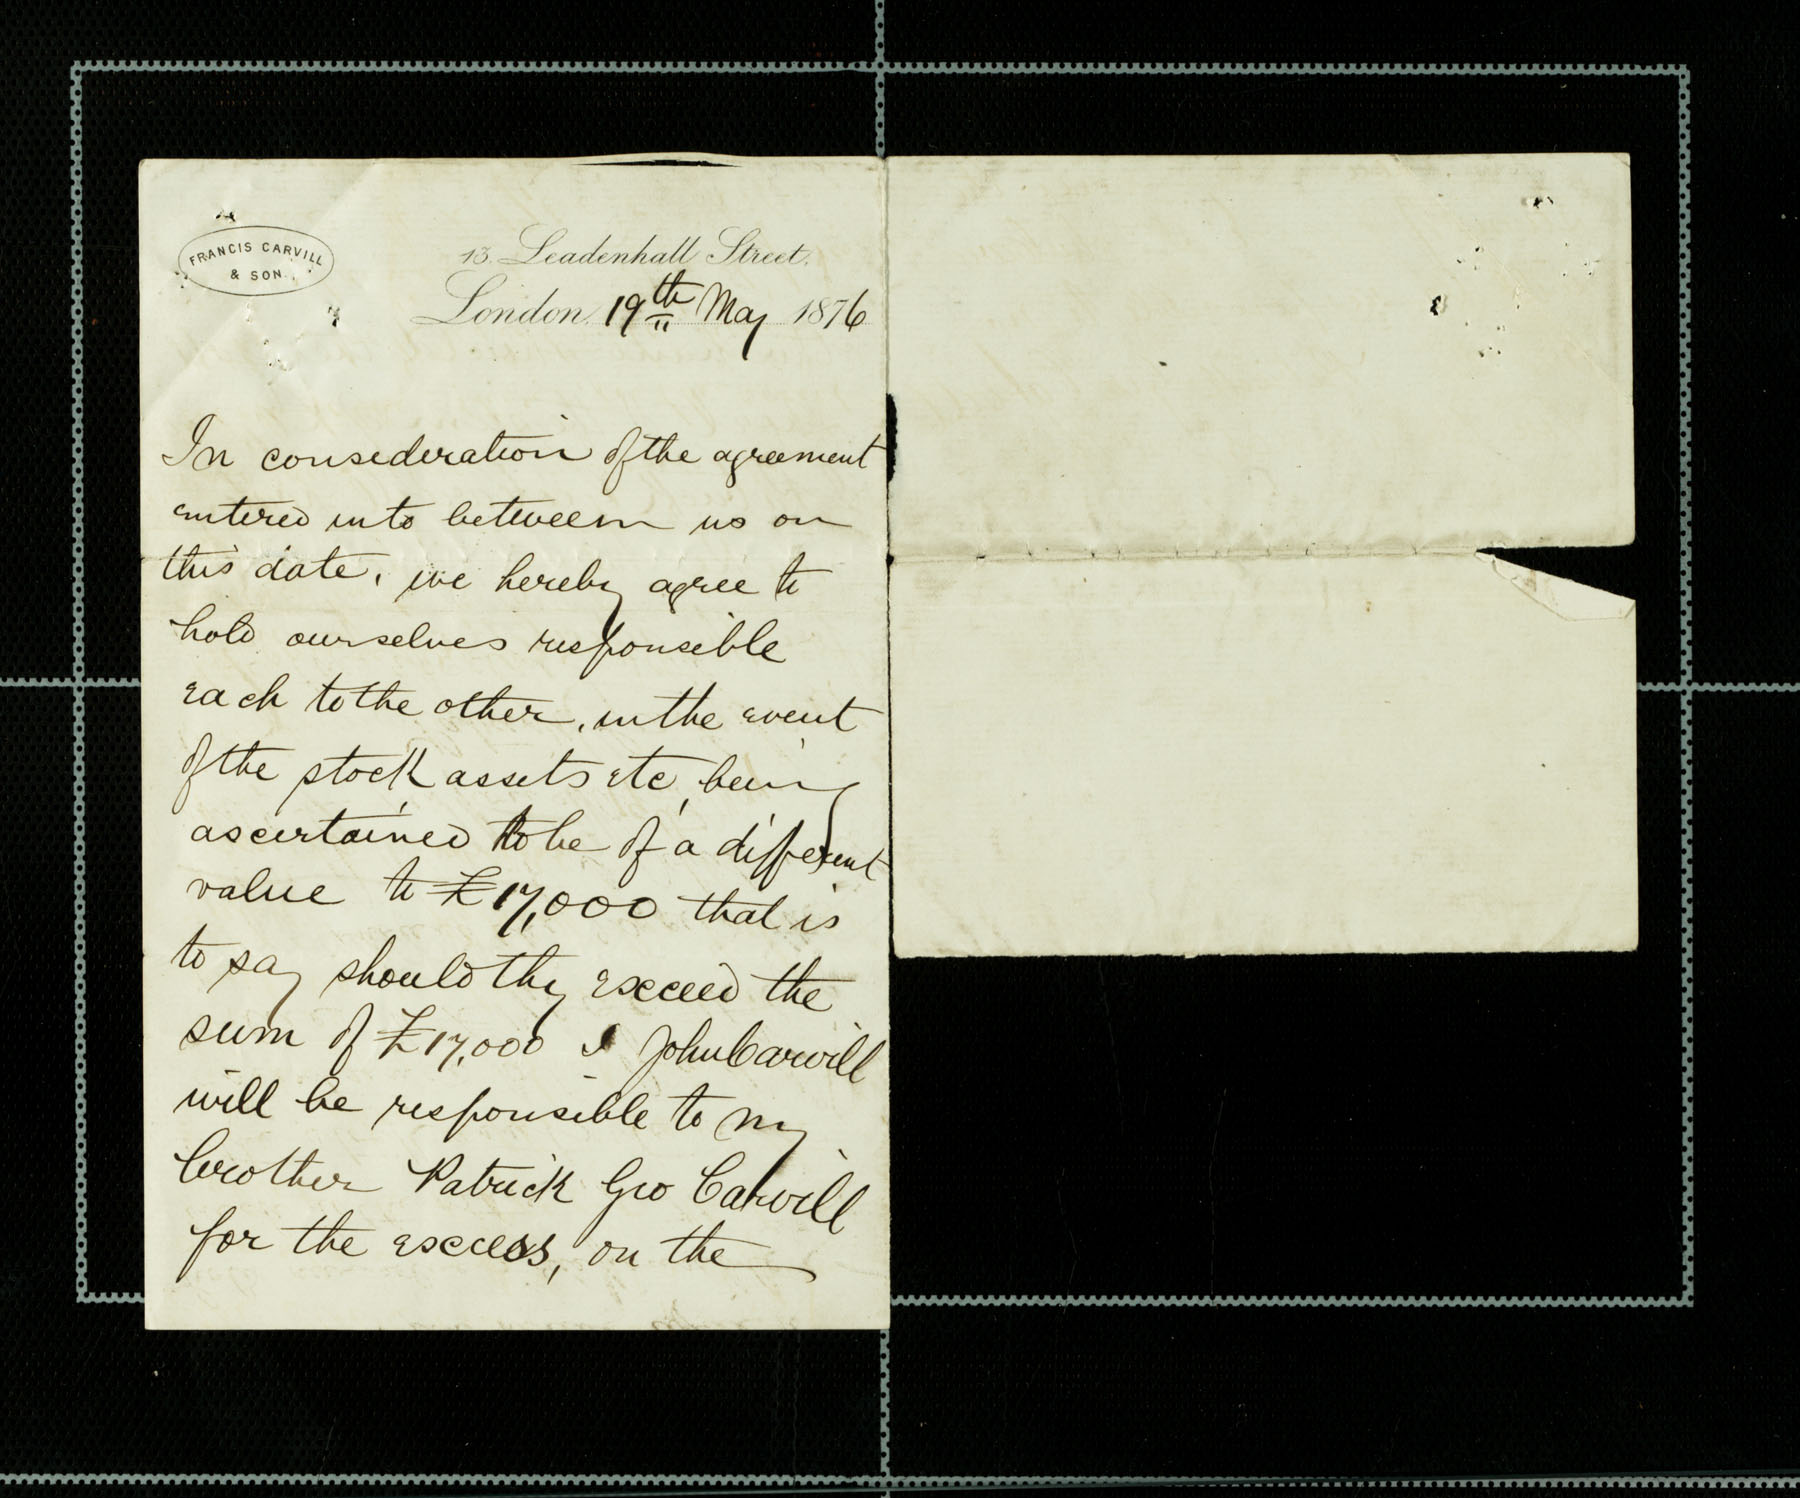 FRANCIS CARVILL
& SON.
13. Leadenhall Street.
London 19th May 1876
In consideration of the agreement
entered into between us on
this date, we hereby agree to
hold ourselves responsible
each to the other, in the event
of the stock assets etc, being
ascertained to be of a different
value to £17,000 that is
to say should they exceed the
sum of £17,000 I John Carvill
will be responsible to my
brother Patrick Geo Carvill
for the excess, on the